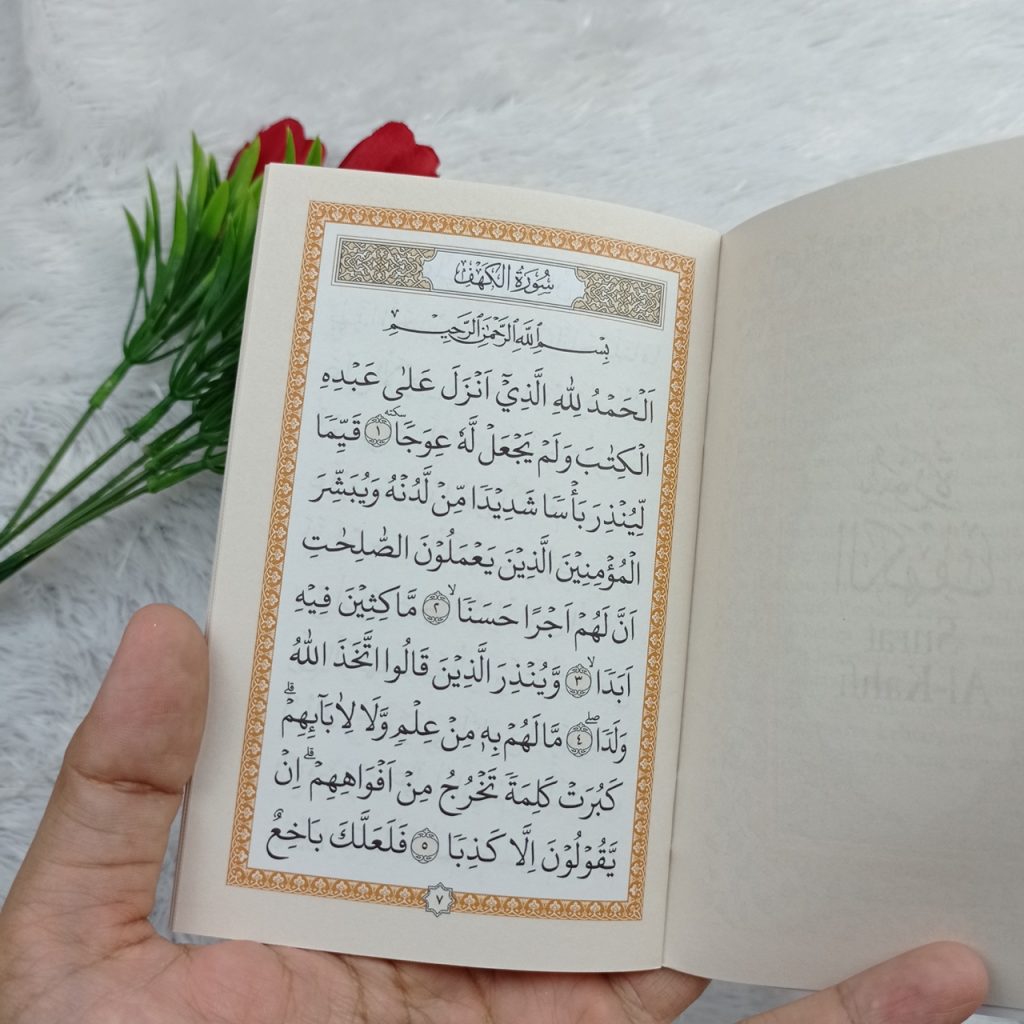 سُورَةُ الْكَهْفِ
بِسْمِ اللَّهِ الرَّحْمَٰنِ الرَّحِيمِ
اَلْحَمْدُ لِلّٰهِ الَّذِيْٓ اَنْزَلَ عَلٰى عَبْدِهِ
الْكِتٰبَ وَلَمْ يَجْعَلْ لَّهٗ عِوَجًا ۜ ١ قَيِّمًا
لِّيُنْذِرَ بَأْسًا شَدِيْدًا مِّنْ لَّدُنْهُ وَيُبَشِّرَ
الْمُؤْمِنِيْنَ الَّذِيْنَ يَعْمَلُوْنَ الصّٰلِحٰتِ
اَنَّ لَهُمْ اَجْرًا حَسَنًاۙ ٢ مَّاكِثِيْنَ فِيْهِ
اَبَدًاۙ ٣ وَّيُنْذِرَ الَّذِيْنَ قَالُوا اتَّخَذَ اللّٰهُ
وَلَدًاۖ ٤ مَّا لَهُمْ بِهٖ مِنْ عِلْمٍ وَّلَا لِاٰبَاۤىِٕهِمْۗ
كَبُرَتْ كَلِمَةً تَخْرُجُ مِنْ اَفْوَاهِهِمْۗ اِنْ
يَّقُوْلُوْنَ اِلَّا كَذِبًا ٥ فَلَعَلَّكَ بَاخِعٌ
٧
Surat
Al-Kahfi